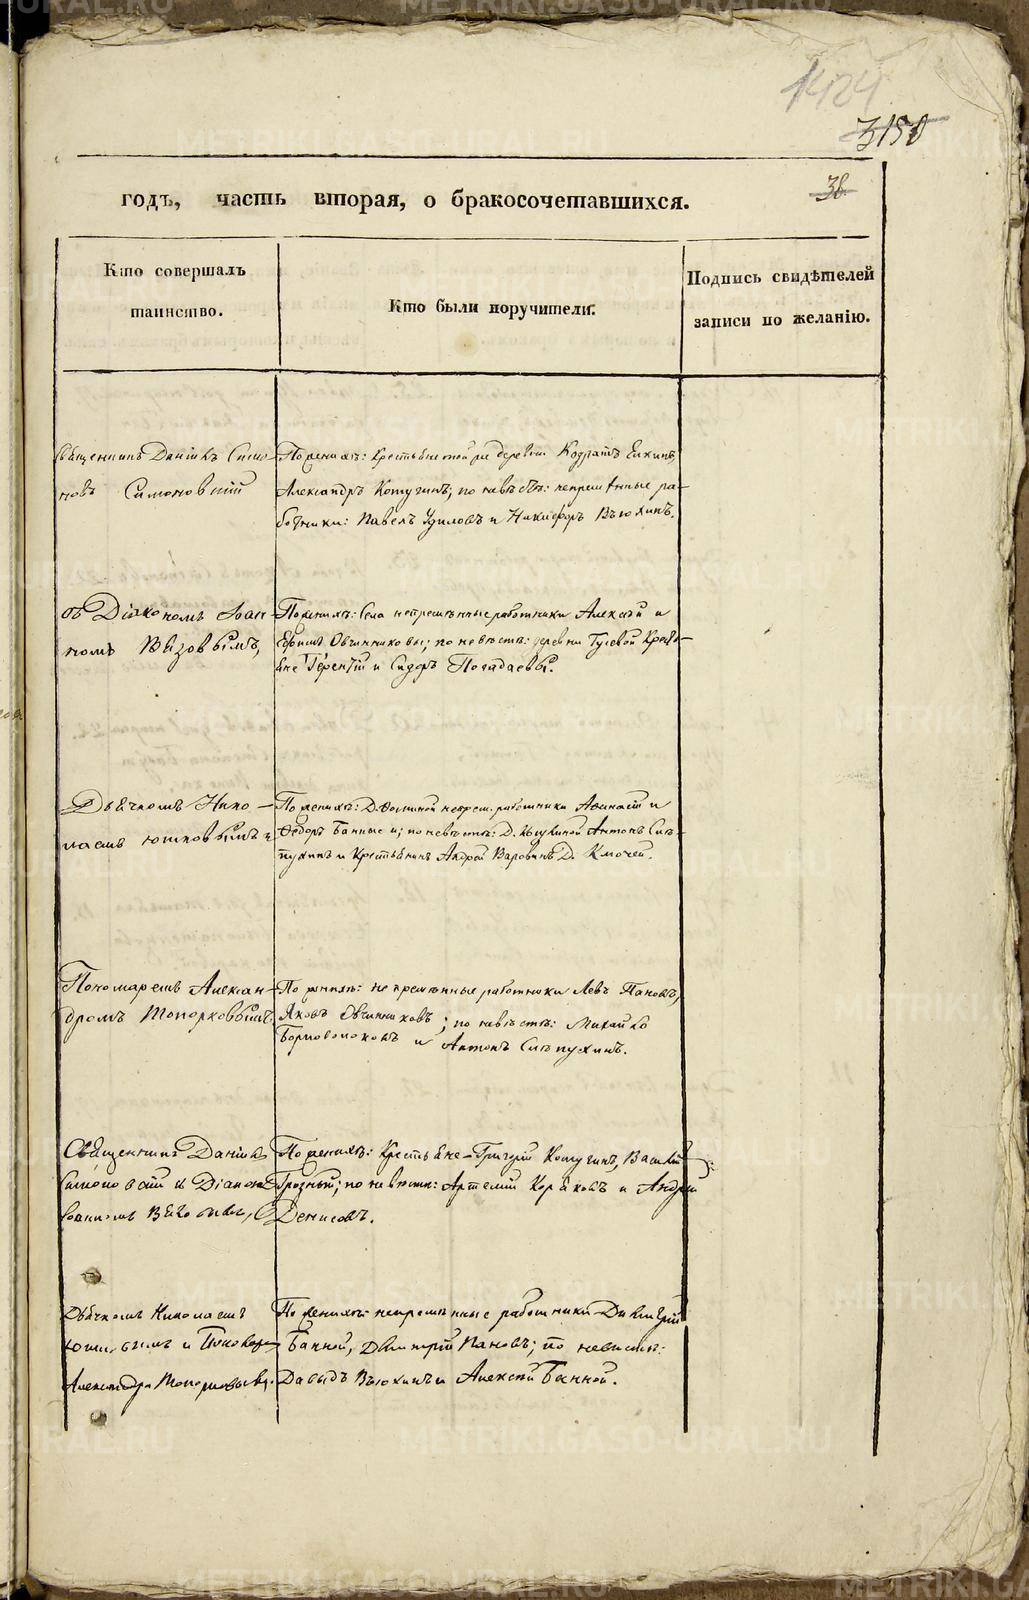 1424
3150
38
годъ, часть вторая, о бракосочетавшихся.
Кто совершалъ
таинство.
Кто были поручители.
Подпись свидѣтелей
записи по желанію.
Священникъ Даніилъ Симо-
новъ Симоновскій
По женихѣ: крестьяне той же деревни Елкинъ,
Александръ Кочугинъ; по невѣстѣ: непремѣнные ра-
ботники: Павелъ и Никифоръ Вьюхинъ.
съ Діякономъ Іоан-
номъ
По женихѣ: села непремѣнные работники Алексѣй и
Ефимъ Овчинниковы; по невѣстѣ: деревни Гусевой Кресть-
яне Терентій и Сидоръ Погадаевы.
Дьячкомъ Нико-
лаемъ и
По женихѣ: Д. непрем. работники Аѳанасій и
Ѳедоръ Банные и; по невѣстѣ: Д. Антонъ Слѣ-
пухинъ и Крестьянинъ Андрей Д. Ключей.
Пономаремъ Алексан-
дромъ Топорковымъ.
По женихѣ: непремѣнные работники Левъ Пановъ,
Яковъ Овчинниковъ; по невѣстѣ: Михайло
и Антонъ Слѣпухинъ.
Священникъ Даніилъ
Симоновскій съ Діакономъ
Іоанномъ
По женихѣ: Крестьяне Григорій Кочугинъ, Василій
Грозный; по невѣстѣ: Артемій и Андрей
Денисовъ.
Дьячкомъ Николаемъ
и Пономаремъ
Александромъ Топорковымъ.
По женихѣ: непремѣнные работники Димитрій
Банной, Дмитрій Пановъ; по невѣстѣ:
Давыдъ Вьюхинъ и Алексѣй Банной.
METRIKI.GASO-URAL.RU